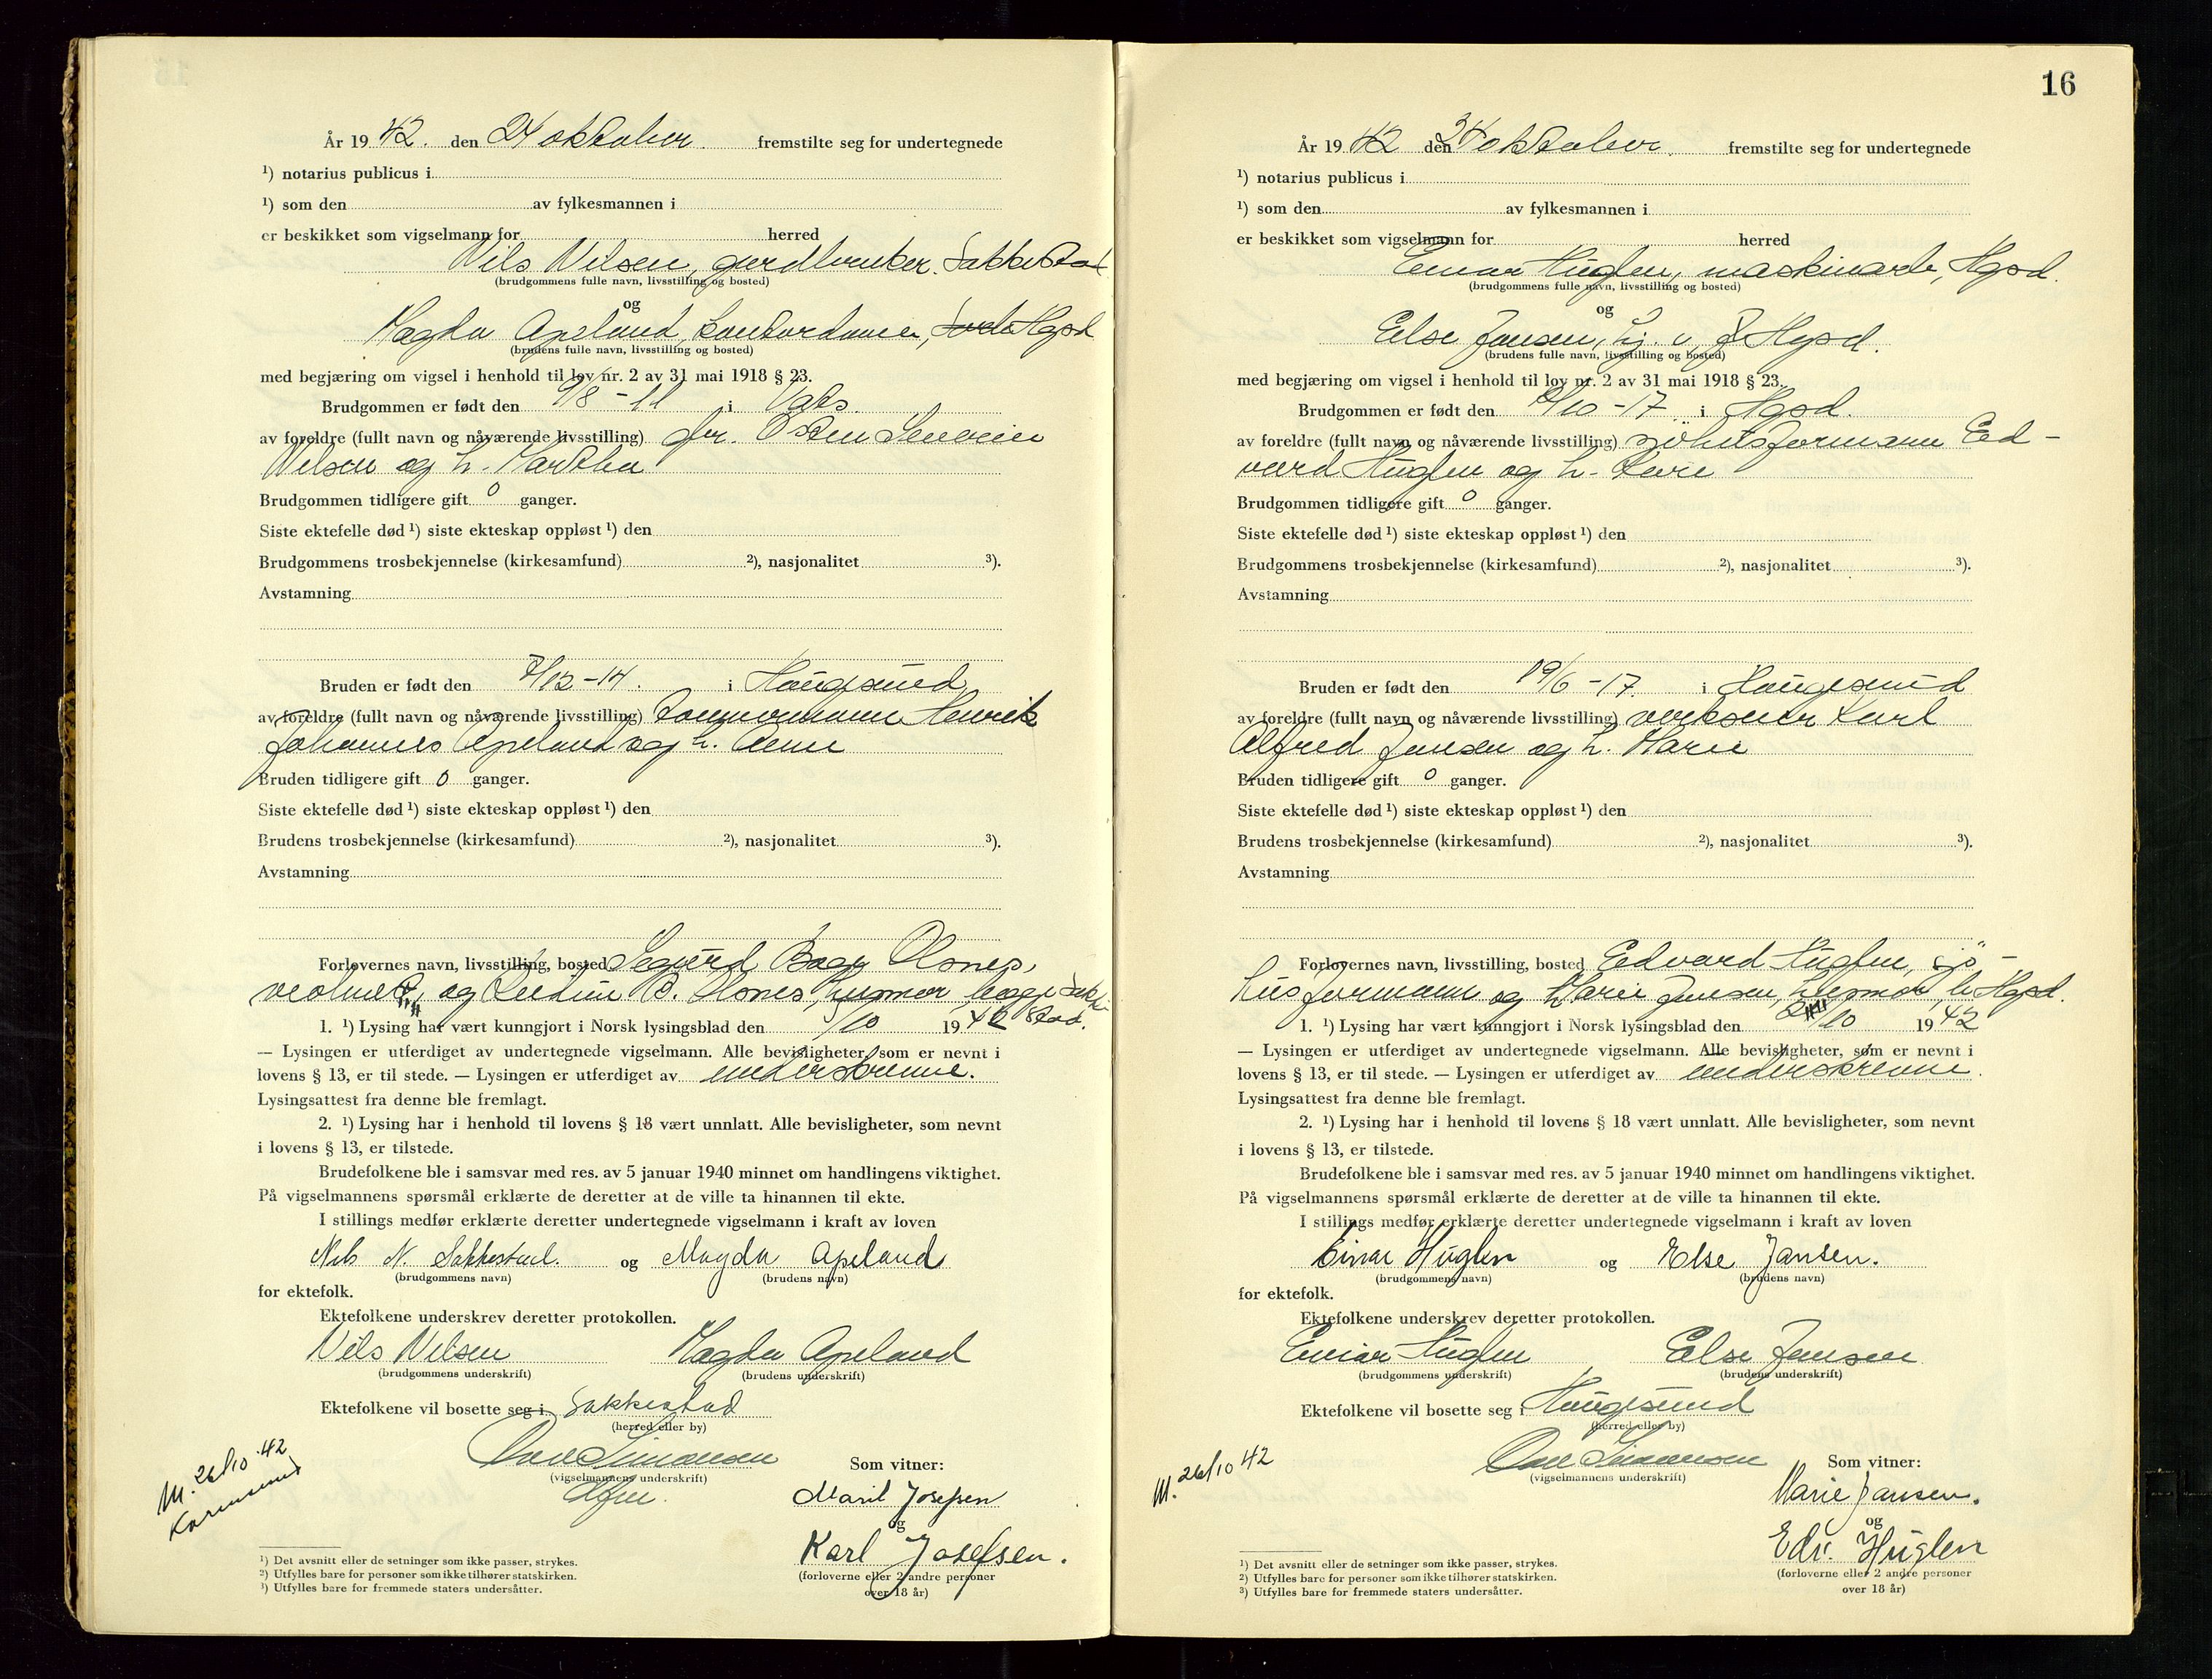 År 1942. den 24 oktober. fremstilte seg for undertegnede
¹) notarius publicus i
¹) som den av fylkesmannen i
er beskikket som vigselmann for herred
Nils Nilsen, gardbruker, Sakkestad
(brudgommens fulle navn, livsstilling og bosted)
og
Magda Apeland, kontordame, Hgsd
(brudens fulle navn, livsstilling og bosted)
med begjæring om vigsel i henhold til lov nr. 2 av 31 mai 1918 § 23.
Brudgommen er født den /8-11 i Vats.
av foreldre (fullt navn og nåværende livsstilling) gbr. Osten
Nilsen og h. Martha
Brudgommen tidligere gift 0 ganger.
Siste ektefelle død ¹) siste ekteskap oppløst ¹) den
Brudgommens trosbekjennelse (kirkesamfund) ²), nasjonalitet ³).
Avstamning
Bruden er født den 7/12-14. i Haugesund
av foreldre (fullt navn og nåværende livsstilling) tømmermann Henrik
Johannes Apeland og h. Anne
Bruden tidligere gift 0 ganger.
Siste ektefelle død ¹) siste ekteskap oppløst ¹) den
Brudens trosbekjennelse (kirkesamfund) ²), nasjonalitet ³).
Avstamning
Forlovernes navn, livsstilling, bosted Sigurd Bagge Olsnes,
og B. Olsnes, husmor, begge Sakke
stad.
1. ¹) Lysing har vært kunngjort i Norsk lysingsblad den 5/10 1942
— Lysingen er utferdiget av undertegnede vigselmann. Alle bevisligheter, som er nevnt i
lovens § 13, er til stede. — Lysingen er utferdiget av understrenne.
Lysingsattest fra denne ble fremlagt.
2. ¹) Lysing har i henhold til lovens § 18 vært unnlatt. Alle bevisligheter, som nevnt
i lovens § 13, er tilstede.
Brudefolkene ble i samsvar med res. av 5 januar 1940 minnet om handlingens viktighet.
På vigselmannens spørsmål erklærte de deretter at de ville ta hinannen til ekte.
I stillings medfør erklærte deretter undertegnede vigselmann i kraft av loven
Nils N. Sakkestad. og Magda Apeland
(brudgommens navn) (brudens navn)
for ektefolk.
Ektefolkene underskrev deretter protokollen.
Nils Nilsen Magda Apeland
(brudgommens underskrift) (brudens underskrift)
Ektefolkene vil bosette seg i Sakkestad
(herred eller by)
Simonsen
(vigselmannens underskrift)
Som vitner:
Marit Josefsen
og
Karl Josefsen.
(forloverne eller 2 andre personer
over 18 år)
M. 26/10 42
Karmsund
¹) Det avsnitt eller de setninger som ikke passer, strykes.
²) Utfylles bare for personer som ikke tilhører statskirken.
³) Utfylles bare for fremmede staters undersåtter.
16
År 1942 den 24 oktober. fremstilte seg for undertegnede
¹) notarius publicus i
¹) som den av fylkesmannen i
er beskikket som vigselmann for herred
Einar Huglen, maskinarb, Hgsd.
(brudgommens fulle navn, livsstilling og bosted)
og
Else Jansen, Hgsd.
(brudens fulle navn, livsstilling og bosted)
med begjæring om vigsel i henhold til lov nr. 2 av 31 mai 1918 § 23.
Brudgommen er født den /10-17 i Hgsd.
av foreldre (fullt navn og nåværende livsstilling) sjöhusformann Ed-
vard Huglen og h. Kari
Brudgommen tidligere gift 0 ganger.
Siste ektefelle død ¹) siste ekteskap oppløst ¹) den
Brudgommens trosbekjennelse (kirkesamfund) ²), nasjonalitet ³).
Avstamning
Bruden er født den 19/6-17. i Haugesund
av foreldre (fullt navn og nåværende livsstilling) verkseier Karl
Alfred Jansen og h. Marie
Bruden tidligere gift 0 ganger.
Siste ektefelle død ¹) siste ekteskap oppløst ¹) den
Brudens trosbekjennelse (kirkesamfund) ²), nasjonalitet ³).
Avstamning
Forlovernes navn, livsstilling, bosted Edvard Huglen, sjö-
husformann og Marie Jansen, husmor, b. Hgsd.
1. ¹) Lysing har vært kunngjort i Norsk lysingsblad den /10 1942
— Lysingen er utferdiget av undertegnede vigselmann. Alle bevisligheter, som er nevnt i
lovens § 13, er til stede. — Lysingen er utferdiget av understrenne.
Lysingsattest fra denne ble fremlagt.
2. ¹) Lysing har i henhold til lovens § 18 vært unnlatt. Alle bevisligheter, som nevnt
i lovens § 13, er tilstede.
Brudefolkene ble i samsvar med res. av 5 januar 1940 minnet om handlingens viktighet.
På vigselmannens spørsmål erklærte de deretter at de ville ta hinannen til ekte.
I stillings medfør erklærte deretter undertegnede vigselmann i kraft av loven
Einar Huglen og Else Jansen.
(brudgommens navn) (brudens navn)
for ektefolk.
Ektefolkene underskrev deretter protokollen.
Einar Huglen Else Jansen
(brudgommens underskrift) (brudens underskrift)
Ektefolkene vil bosette seg i Haugesund
(herred eller by)
Simonsen
(vigselmannens underskrift)
Som vitner:
Marie Jansen.
og
Edv. Huglen
(forloverne eller 2 andre personer
over 18 år)
M. 26/10 42
¹) Det avsnitt eller de setninger som ikke passer, strykes.
²) Utfylles bare for personer som ikke tilhører statskirken.
³) Utfylles bare for fremmede staters undersåtter.